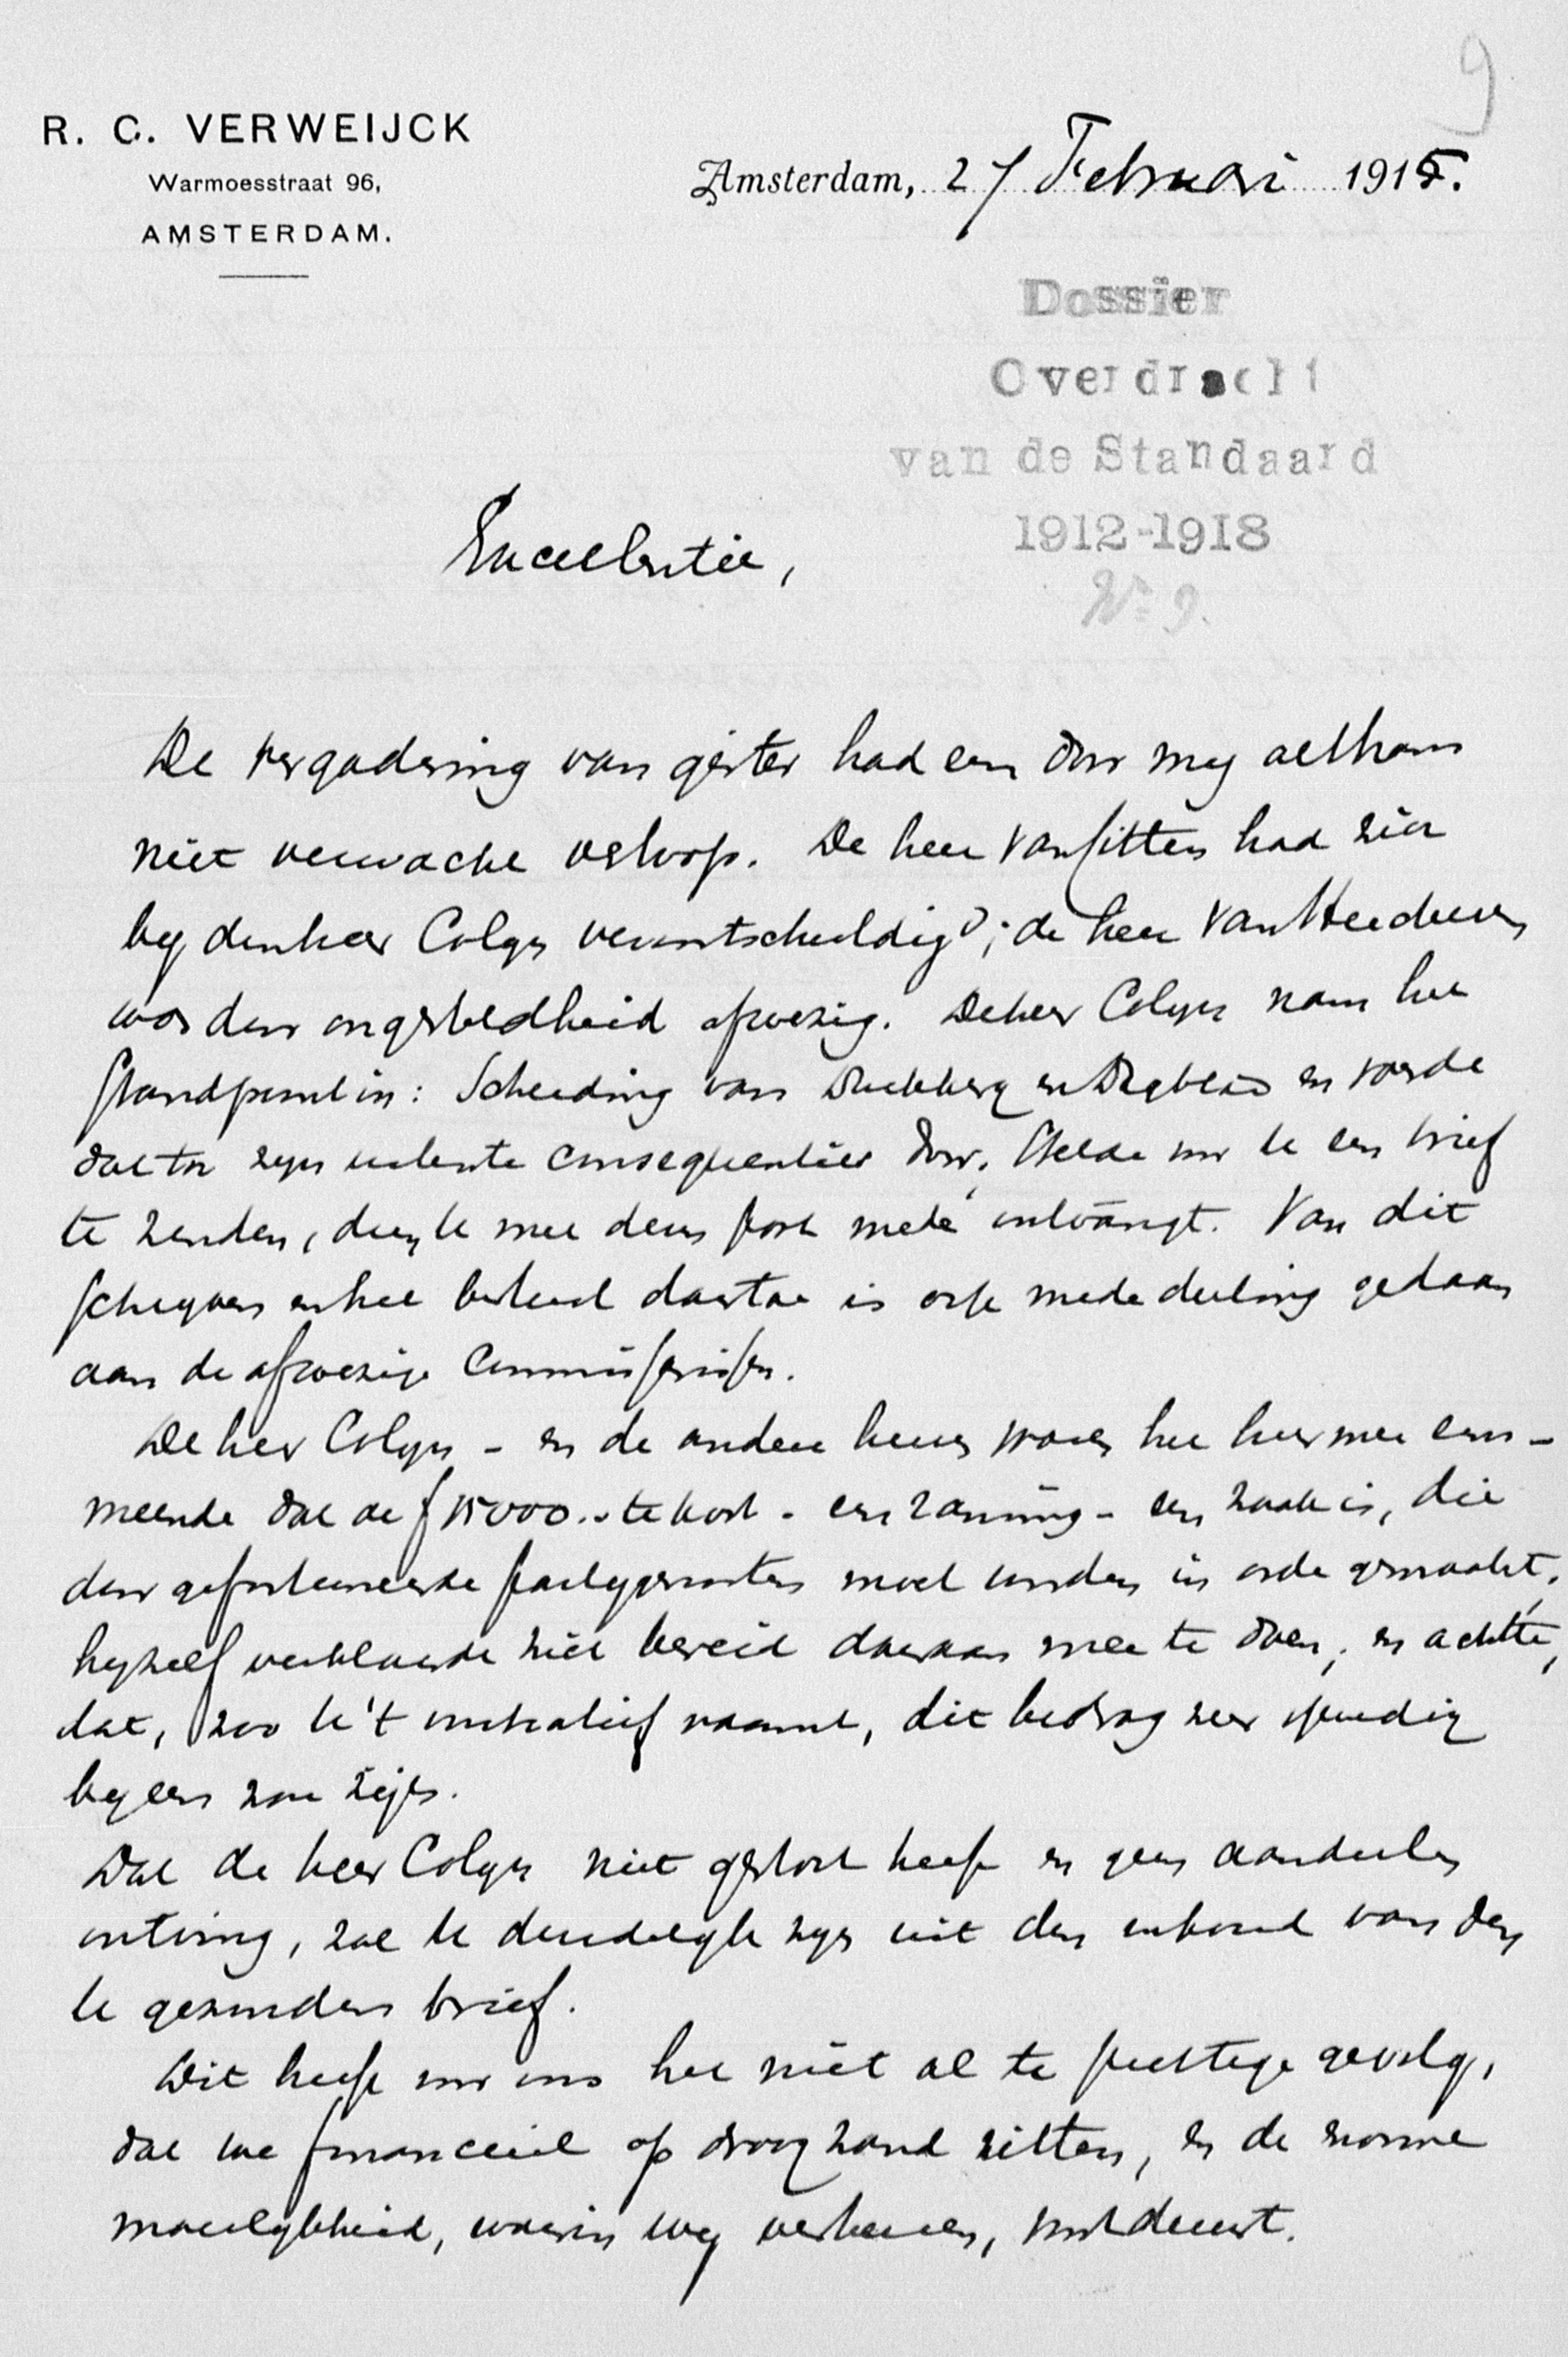 9
R. C. VERWEIJCK
Warmoesstraat 96,
AMSTERDAM.
Amsterdam, 27 Februari 1915.
Dossier
Overdracht
van de Standaard
1912-1918
No 9.
Excellentie,
De vergadering van gister had een door mij althans
niet verwacht verloop. De heer van Sitters had zich
bij den heer Colijn verontschuldigd; de heer van Heeckeren
was door ongesteldheid afwezig. De heer Colijn nam het
standpunt in: Scheiding van Drukkerij en Dagblad en voerde
dat tot zijn uiterste consequentiën door, stelde voor U een brief
te zenden, dien U met deze post mede ontvangt. Van dit
schrijven en het besluit daartoe is ook mededeeling gedaan
aan de afwezige Commissarissen.
De heer Colijn - en de andere heeren waren het hiermee eens -
meende dat de f 15000.- te kort - een raming - een zaak is, die
door gefortuneerde partijgenooten moet worden in orde gemaakt,
hijzelf verklaarde zich bereid daaraan mee te doen, en achtte,
dat, zoo U 't initiatief naamt, dit bedrag zeer spoedig
bijeen zou zijn.
Dat de heer Colijn niet gestort heeft en geen aandeelen
ontving, zal U duidelijk zijn uit den inhoud van den
U gezonden brief.
Dit heeft voor ons het niet al te prettige gevolg,
dat we financieel op droog zand zitten, en de enorme
moeilijkheid, waarin wij verkeeren, voortduurt.